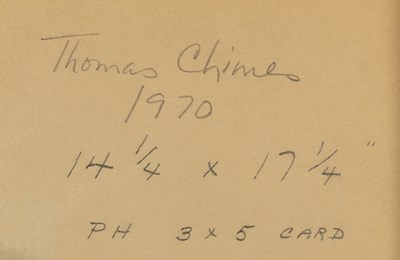 Thomas Chimes
1970
14 1/4 x 17 1/4"
PH 3 x 5 CARD